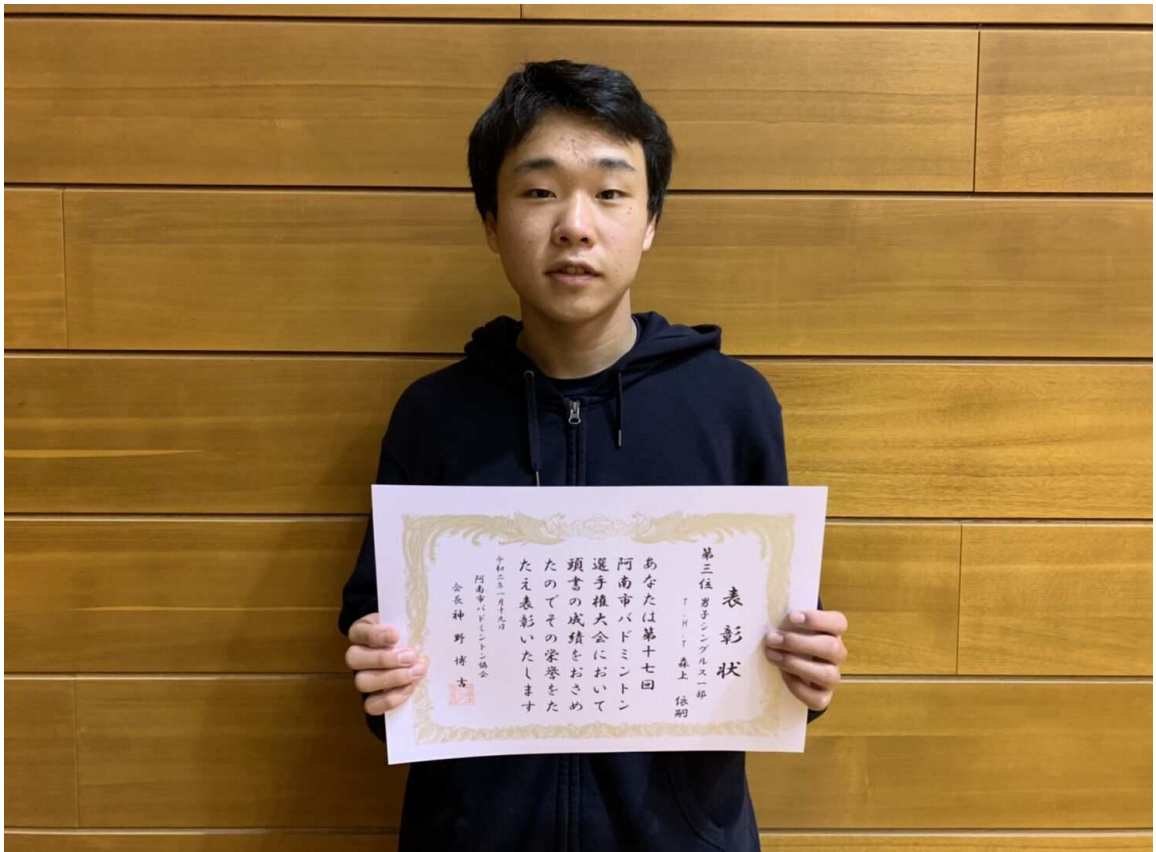 表彰状
第三位 男子シングルス一部
T.H.T 森上 依嗣
あなたは第十七回
阿南市バドミントン
選手権大会において
頭書の成績をおさめ
たのでその栄誉をた
たえ表彰いたします
令和二年一月十九日
阿南市バドミントン協会
会長 神野 博吉